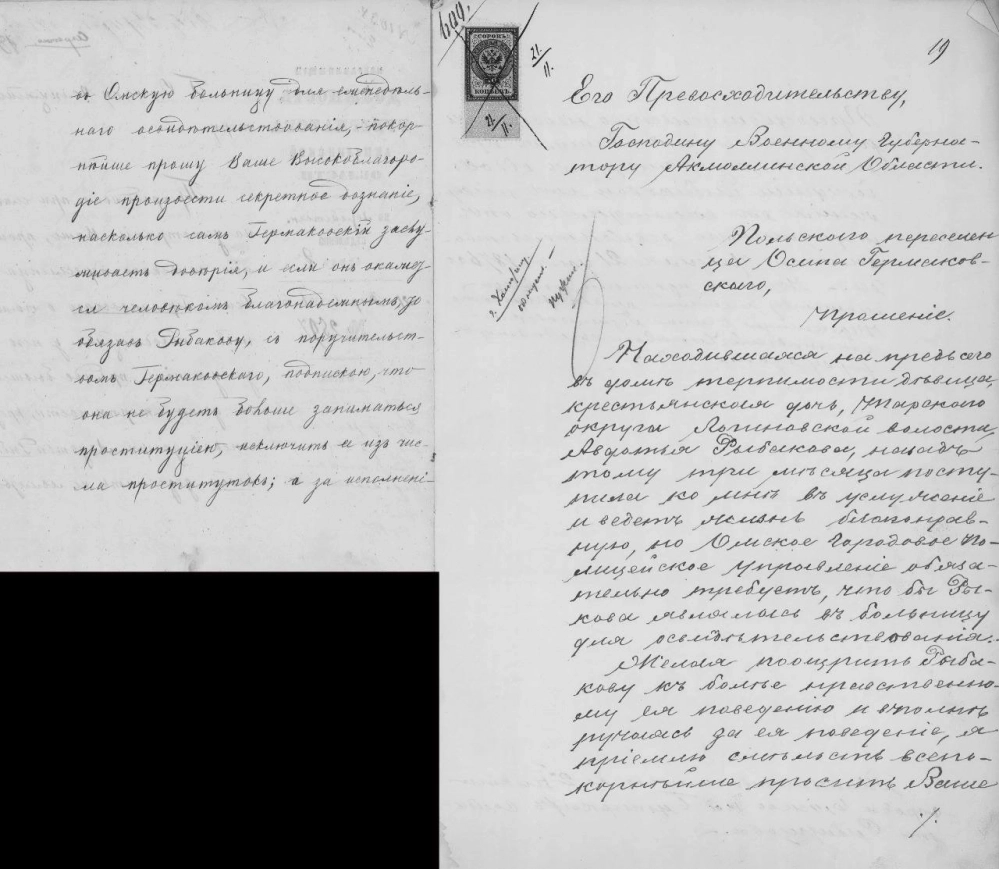 въ Омскую больницу для еженедѣль-
наго освидѣтельствованія, – покор-
нѣйше прошу Ваше Высокоблагоро-
діе произвести секретное дознаніе,
насколько самъ Гермаковскій заслу-
живаетъ довѣрія, и если онъ окажет-
ся человѣкомъ благонадежнымъ, то
обязавъ Рыбакову, съ поручительст-
вомъ Гермаковскаго, подпискою, что
она не будетъ больше заниматься
проституціею, исключить ее изъ чис-
ла проститутокъ; а за исполнені-
600.
СОРОКЪ
КОПѢЕКЪ
21/11.
21/11.
19
Его Превосходительству,
Господину Военному Губерна-
тору Акмолинской Области.
Польскаго переселен-
ца Осипа Гермаков-
скаго,
Прошеніе.
Находившаяся на предь сего
въ домѣ терпимости дѣвица,
крестьянская дочь, Тарскаго
округа Логиновской волости,
Авдотья Рыбакова, назадъ
тому три мѣсяца посту-
пила ко мнѣ въ услуженіе
и ведетъ жизнь благонрав-
ную, но Омское Городовое По-
лицейское Управленіе обяза-
тельно требуетъ, что бы Ры-
кова являлась въ больницу
для освидѣтельствованія.
Желая поощрить Рыба-
кову къ болѣе нравственно-
му ея поведенію и вполнѣ
ручаясь за ея поведеніе, я
пріемлю смѣлость всепо-
корнѣйше просить Ваше